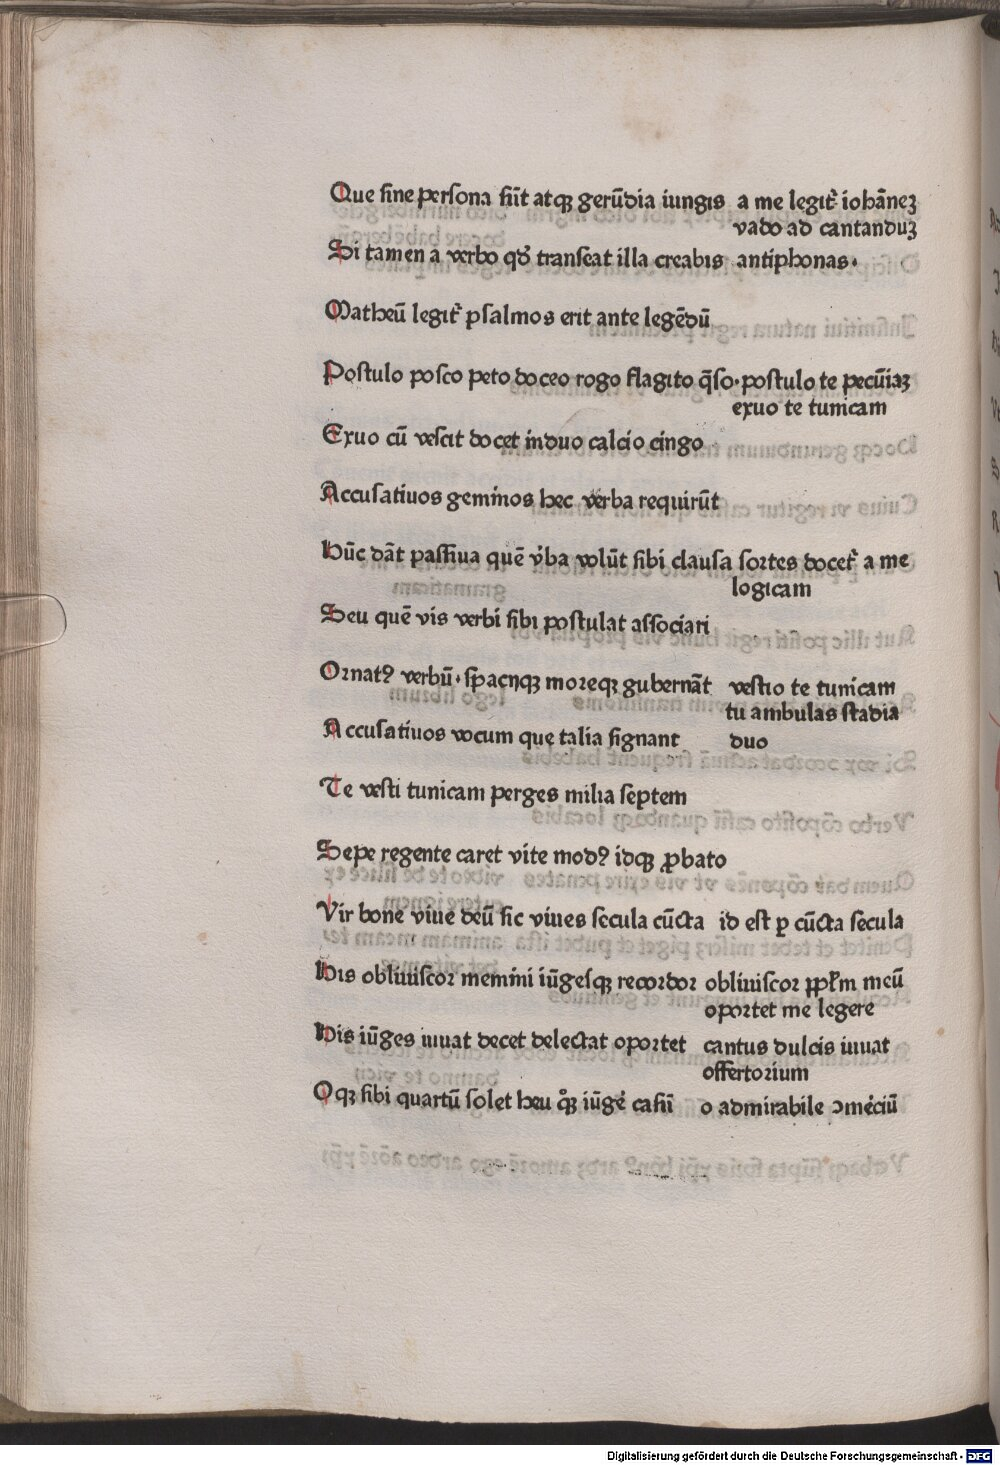 Que ſine perſona ſūt atqꝫ gerūdia iungis a me legit᷑ iohāneꝫ
vado ad cantanduꝫ
Si tamen a verbo qd' tranſeat illa creabis antiphonas·
Matheū legit᷑ pſalmos erit ante legēdū
Poſtulo poſco peto doceo rogo flagito q̄ſo·poſtulo te pecūiaꝫ
exuo te tunicam
Exuo cū veſcit docet induo calcio cingo
Accuſatiuos geminos hec verba requirūt
Hūc dāt paſſiua quē v̓ba volūt ſibi clauſa ſortes docet᷑ a me
logicam
Seu quē vis verbi ſibi poſtulat aſſociari
Ornatꝰ verbū· ſpacqꝫ moreqꝫ gubernāt veſtio te tunicam
tu ambulas ſtadia
Accuſatiuos vocum que talia ſignant duo
Te veſti tunicam perges milia ſeptem
Sepe regente caret vite modꝰ idqꝫ ꝓbato
Vir bone viue deū ſic viues ſecula cūcta id eſt ꝑ cūcta ſecula
His obliuiſcor memini iūgeſqꝫ recordor obliuiſcor meū
oportet me legere
His iūges iuuat decet delectat oportet cantus dulcis iuuat
offertorium
Oqꝫ ſibi quartū ſolet heu iūge᷑ caſū o admirabile ↄme᷑ciū
Digitalisierung gefördert durch die Deutsche Forschungsgemeinschaft - DFG